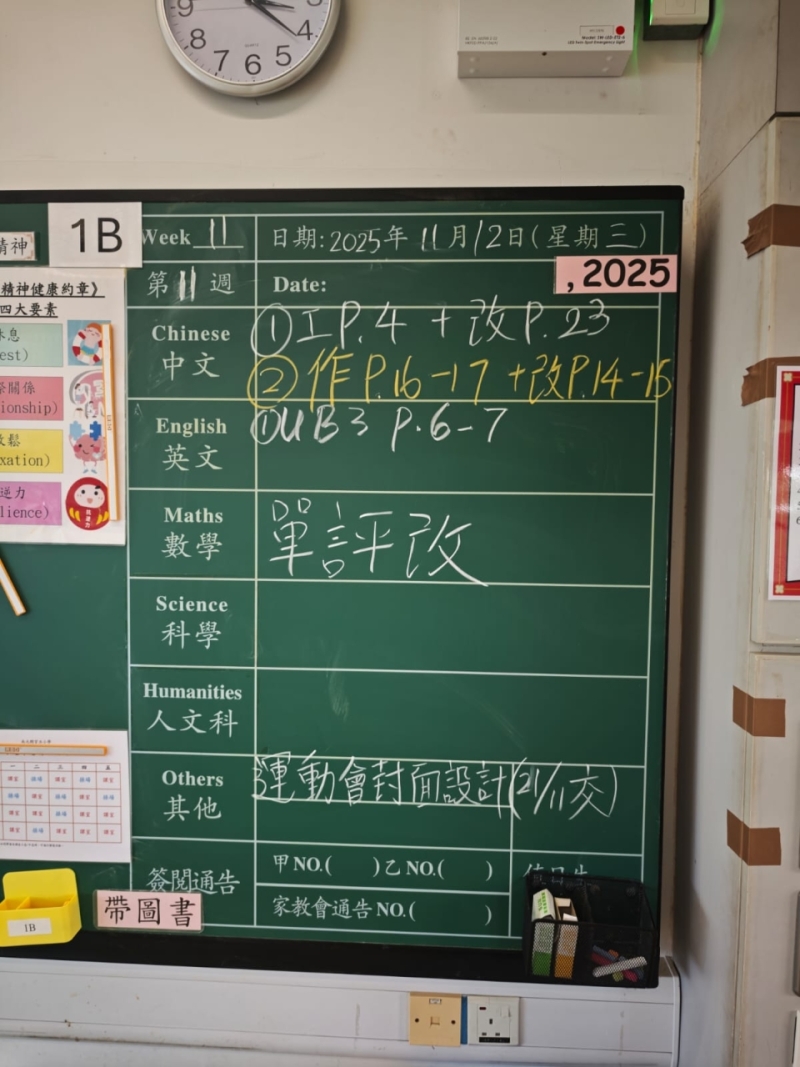 8 7 6 5 4
精神
1B
Week 11
日期: 2025年 11月12日(星期三)
第11週
Date:
, 2025
《精神健康約章》
四大要素
休息
est)
係關係
ionship)
放鬆
xation)
逆力
lience)
Chinese
中文
①工P.4 + 改P.23
②作P.16-17 + 改P.14-15
English
英文
①UB3 P.6-7
Maths
數學
單評改
Science
科學
Humanities
人文科
Others
其他
運動會封面設計(21/11交)
簽閱通告
甲NO.( )乙NO.( )
家教會通告NO.( )
值日生
帶圖書
1B
一 二 三 四 五